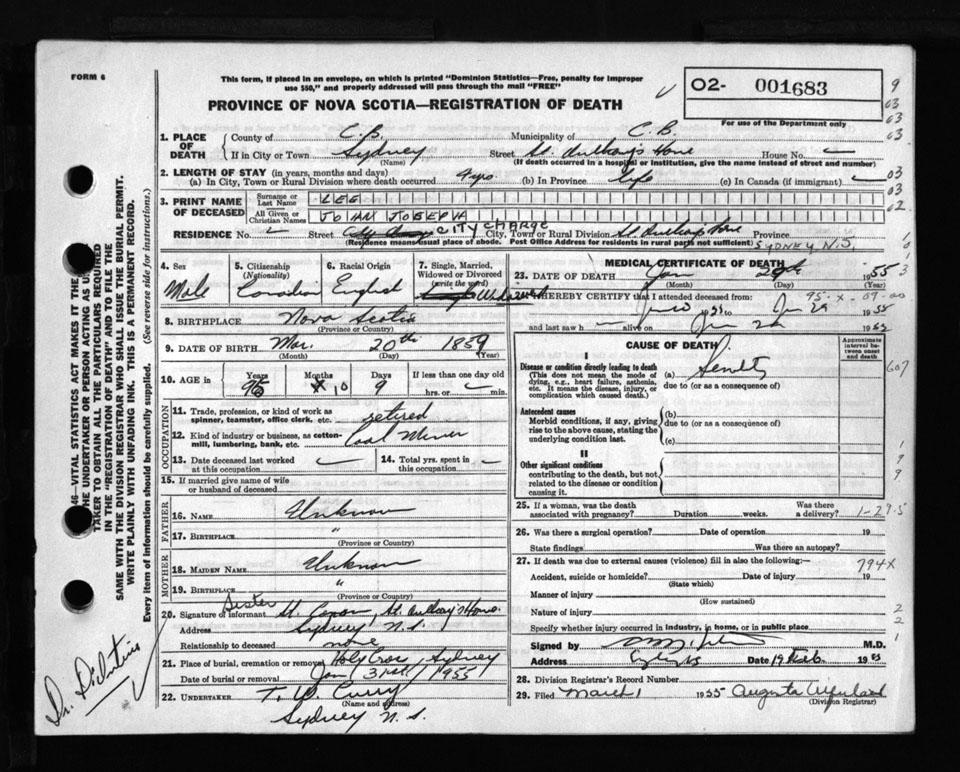 FORM 6
This form, if placed in an envelope, on which is printed "Dominion Statistics—Free, penalty for improper
use $50," and properly addressed will pass through the mail "FREE"
PROVINCE OF NOVA SCOTIA—REGISTRATION OF DEATH
O2- 001683
For use of the Department only
1. PLACE OF DEATH
County of C.B. Municipality of C.B.
If in City or Town Sydney Street St. Anthony's Home House No.
(Name) (If death occurred in a hospital or institution, give the name instead of street and number)
2. LENGTH OF STAY (in years, months and days)
(a) In City, Town or Rural Division where death occurred 4 yrs (b) In Province Life (c) In Canada (if immigrant)
3. PRINT NAME OF DECEASED
Surname or Last Name LEE
All Given or Christian Names JOHN JOSEPH
RESIDENCE No. Street CITY CHARGE City, Town or Rural Division St. Anthony Home
(Residence means usual place of abode. Post Office Address for residents in rural parts not sufficient) SYDNEY N.S.
4. Sex Male
5. Citizenship (Nationality) Canadian
6. Racial Origin English
7. Single, Married, Widowed or Divorced (write the word) Widowed
8. BIRTHPLACE Nova Scotia
(Province or Country)
9. DATE OF BIRTH Mar. 20th 1859
(Month) (Day) (Year)
10. AGE in Years 95 Months 10 Days 9 If less than one day old
hrs. or min.
OCCUPATION
11. Trade, profession, or kind of work as spinner, teamster, office clerk, etc. retired
12. Kind of industry or business, as cotton-mill, lumbering, bank, etc. Coal Miner
13. Date deceased last worked at this occupation
14. Total yrs. spent in this occupation
15. If married give name of wife or husband of deceased
FATHER
16. NAME Unknown
17. BIRTHPLACE "
(Province or Country)
MOTHER
18. MAIDEN NAME Unknown
19. BIRTHPLACE "
(Province or Country)
20. Signature of informant Sister St. Anthony's Home
Address Sydney N.S.
Relationship to deceased none
21. Place of burial, cremation or removal Holy Cross Sydney
Date of burial or removal Jan 31st 1955
22. UNDERTAKER T. W. Curry
(Name and address)
Sydney N.S.
MEDICAL CERTIFICATE OF DEATH
23. DATE OF DEATH Jan 29th 1955
(Month) (Day)
I HEREBY CERTIFY that I attended deceased from
1955
and last saw h alive on Jan 1955
CAUSE OF DEATH
Approximate interval between onset and death
I
Disease or condition directly leading to death
(This does not mean the mode of dying, e.g., heart failure, asthenia, etc. It means the disease, injury, or complication which caused death.)
(a) Senility
due to (or as a consequence of)
Antecedent causes
Morbid conditions, if any, giving rise to the above cause, stating the underlying condition last.
(b)
due to (or as a consequence of)
(c)
II
Other significant conditions
contributing to the death, but not related to the disease or condition causing it.
25. If a woman, was the death associated with pregnancy? Duration weeks. Was there a delivery?
26. Was there a surgical operation? Date of operation 19
State findings Was there an autopsy?
27. If death was due to external causes (violence) fill in also the following:—
794X
Accident, suicide or homicide? Date of injury 19
(State which)
Manner of injury
(How sustained)
Nature of injury
Specify whether injury occurred in industry, in home, or in public place
Signed by M.D.
Address Date 19 Feb 1955
28. Division Registrar's Record Number
29. Filed March 1 1955 Augusta
(Division Registrar)
46—VITAL STATISTICS ACT MAKES IT THE
THE UNDERTAKER OR PERSON ACTING AS
TAKER TO OBTAIN ALL THE PARTICULARS REQUIRED
IN THE "REGISTRATION OF DEATH" AND TO FILE THE
SAME WITH THE DIVISION REGISTRAR WHO SHALL ISSUE THE BURIAL PERMIT.
WRITE PLAINLY WITH UNFADING INK. THIS IS A PERMANENT RECORD.
Every item of information should be carefully supplied. (See reverse side for instructions.)
Dr.